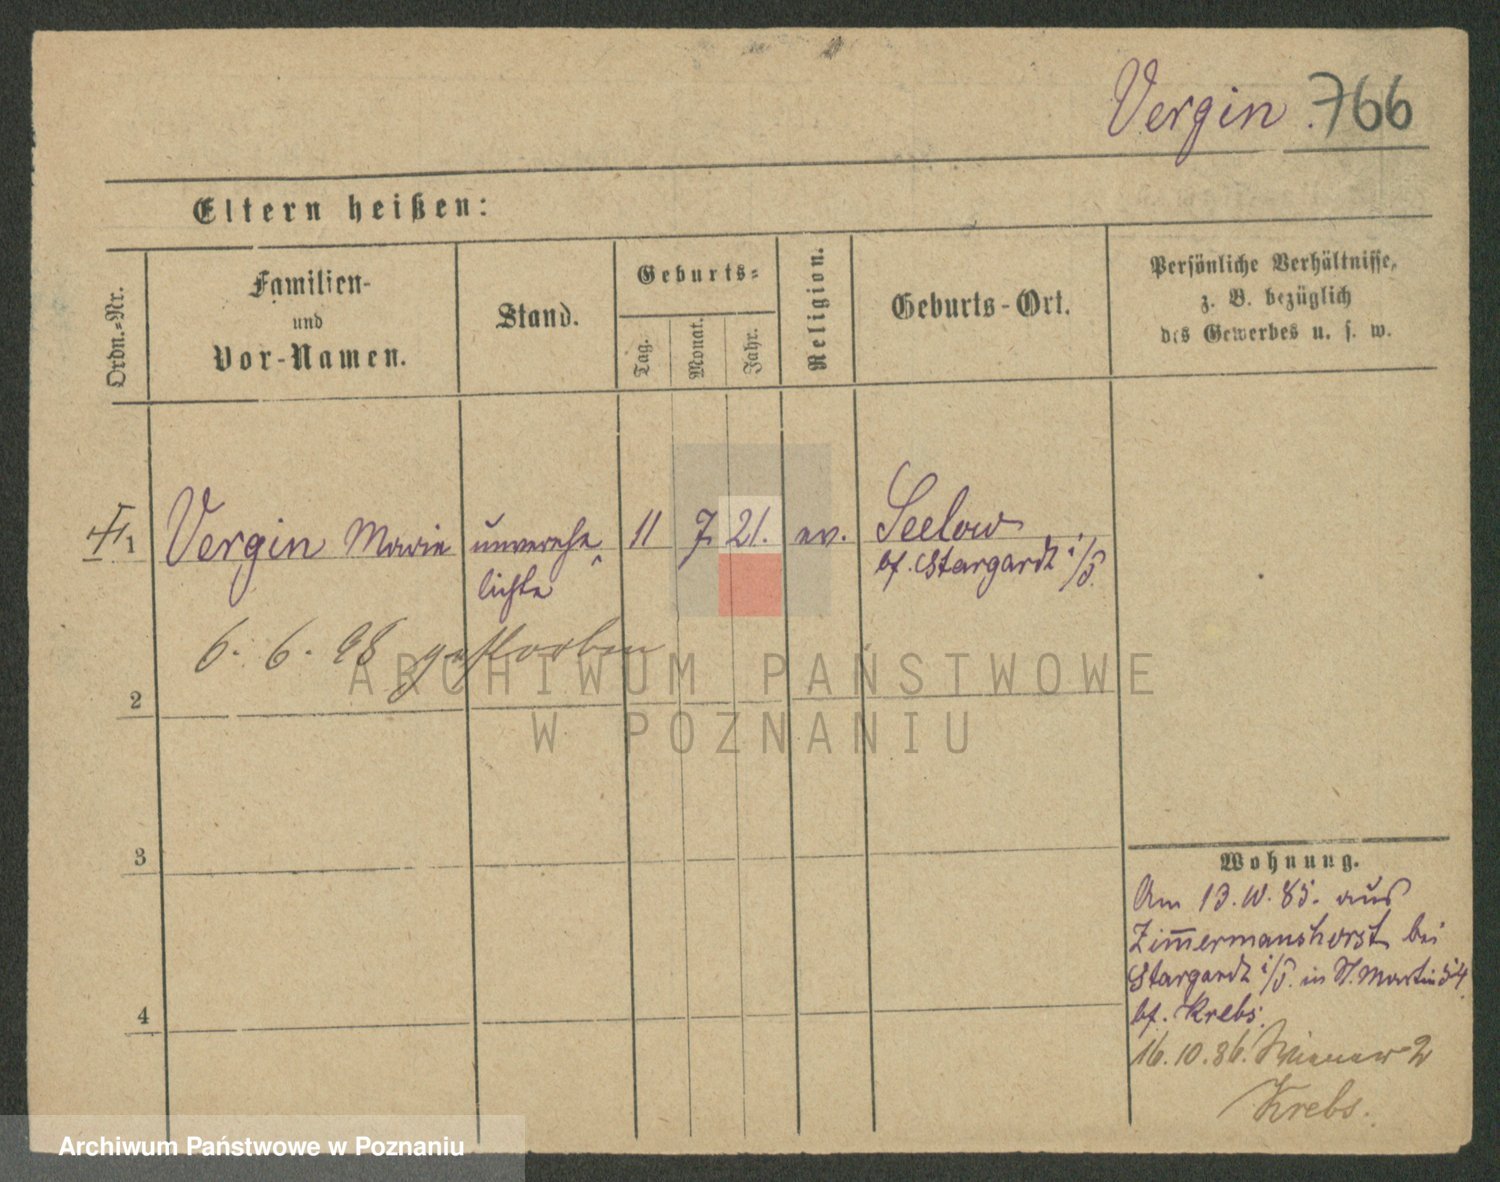 Vergin 766
Eltern heißen:
Ordn.-Nr.
Familien-
und
Vor-Namen.
Stand.
Geburts-
Tag.
Monat.
Jahr.
Religion.
Geburts-Ort.
Persönliche Verhältnisse,
z. B. bezüglich
des Gewerbes u. s. w.
1 Vergin Marie unverehe 11 7. 21. ev. Seelow
lichte bf. Stargardt i/P.
6. 6. 98 gestorben
2
3
4
Wohnung.
Am 13. IV. 85. aus
Zim̅ermanshorst bei
Stargardt i/P. in St. Martin 54
bf. Krebs.
16. 10. 86. 2
Krebs.
ARCHIWUM PAŃSTWOWE
W POZNANIU
Archiwum Państwowe w Poznaniu